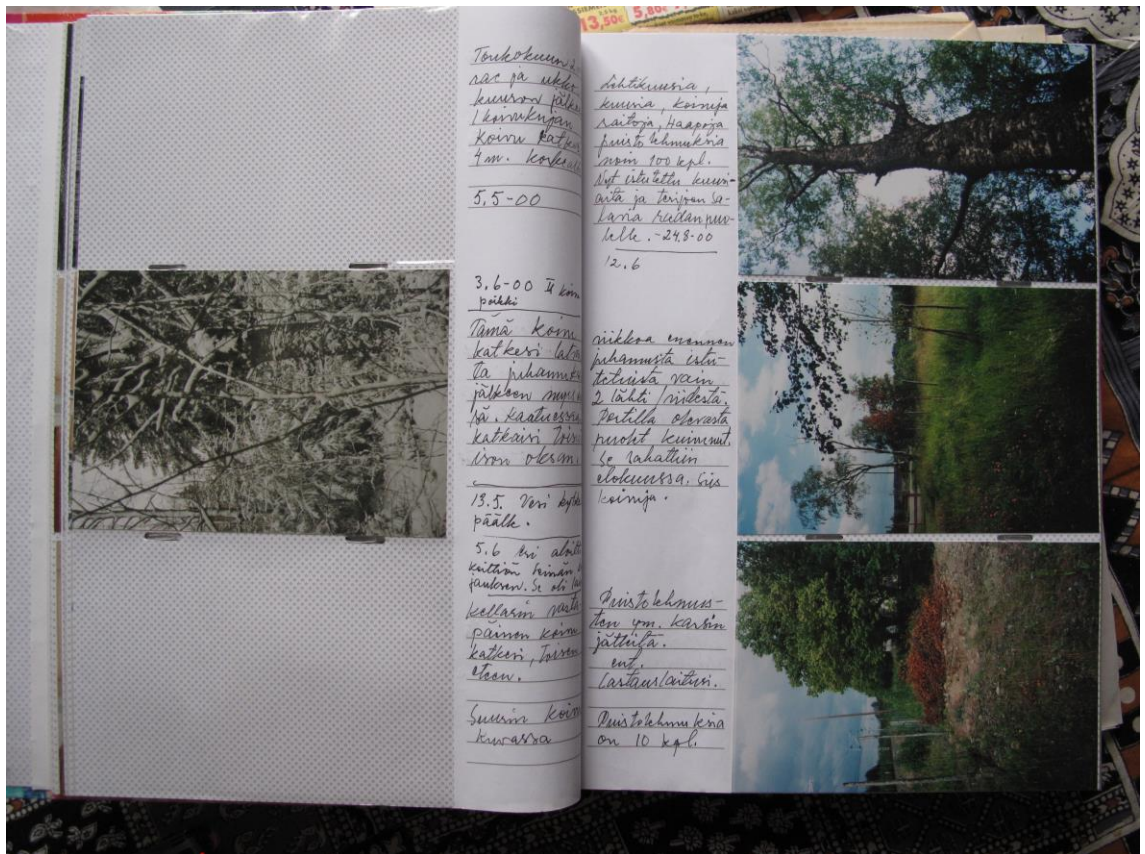 13,50€ 5,80€
Toukokuun
rae ja ukko
kuuron jälke
1 koivukujan
Koivu katke
4 m.
5.5-00
3.6-00 II koiv
poikki
Tämä koivu
katkesi
ta juhannuk
jälkeen
Kaatuessa
katkaisi tois
ison oksan.
13.5. Vesi kytk
päälle.
5.6 esi aloitt
keittiön seinän
Se oli
kellarin vasta
päinen koivu
katkesi, toisen
eteen.
Suurin koivu
kuvassa
Lehtikuusia,
kuusia, koivuja
raitoja, Haapoja
puistolehmuksia
noin 100 kpl.
Nyt istutettu kuusi-
aita ja terijoen sa-
lavia radan puo-
lelle. -24.8-00
12.6
viikkoa ennen
juhannusta istu-
tetuista vain
2 lähti
Portilla olevasta
puolet kuivunut.
Se sahattiin
elokuussa. Siis
koivuja.
Puistolehmus-
ten ym. karsin
jätteitä.
ent.
lastauslaituri.
Puistolehmuksia
on 10 kpl.